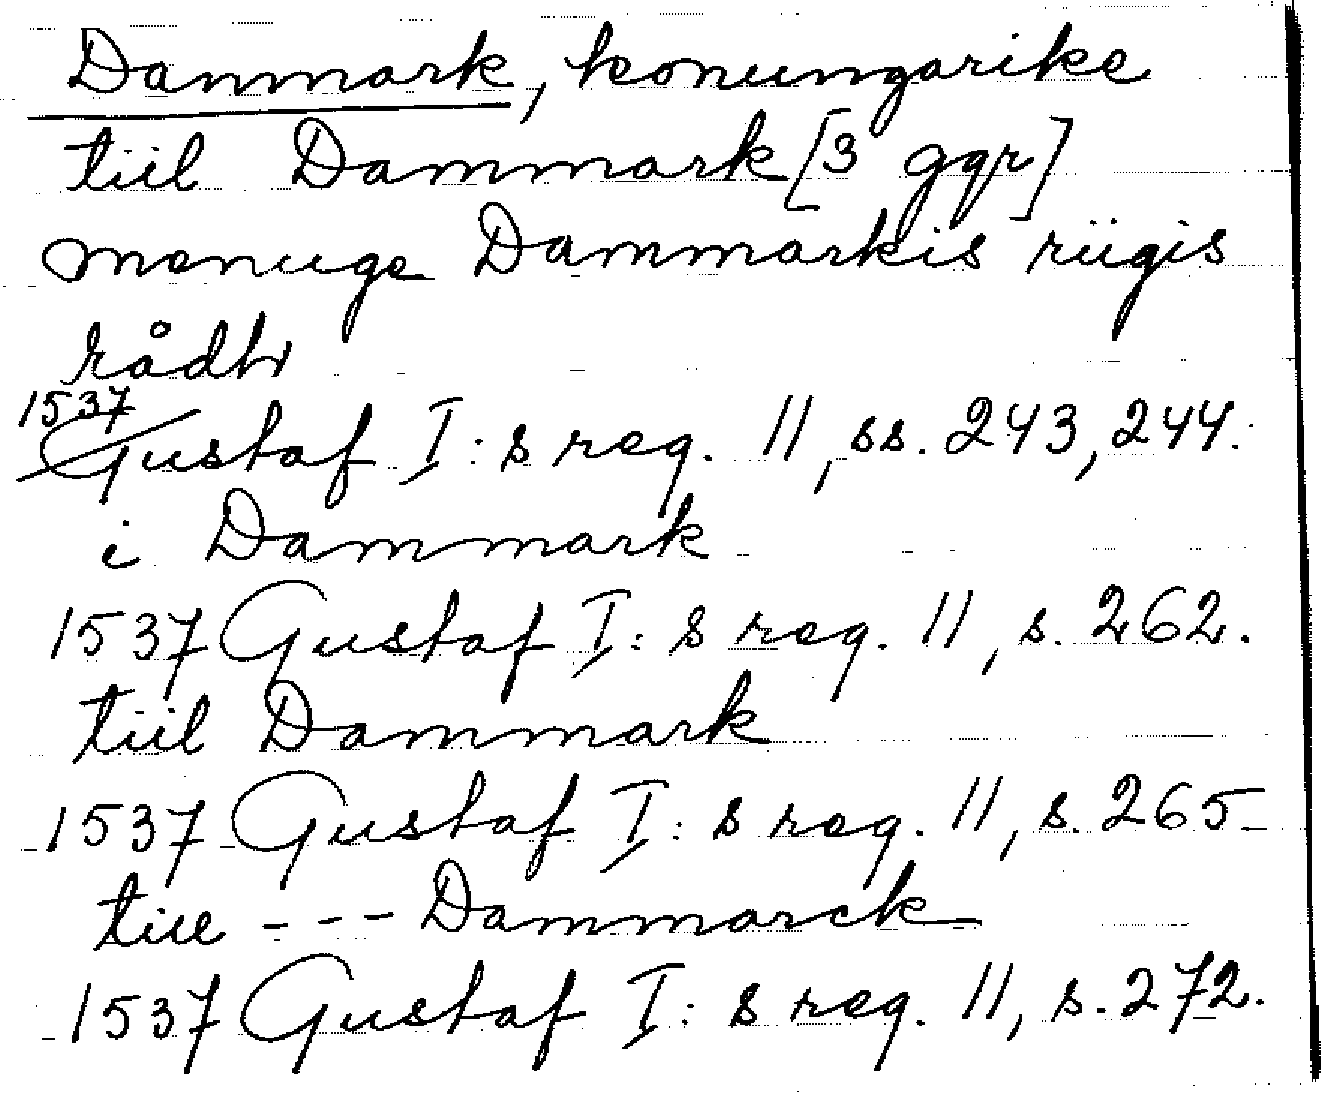 Danmark, konungarike
tiil Dammark [3 ggr]
menuge Dammarkis riigis
rådh
1537
Gustaf I:s reg. 11, ss. 243, 244.
i Dammark
1537 Gustaf I:s reg. 11, s. 262.
tiil Dammark
1537 Gustaf I:s reg. 11, s. 265
till --- Dammarck
1537 Gustaf I:s reg. 11, s. 272.